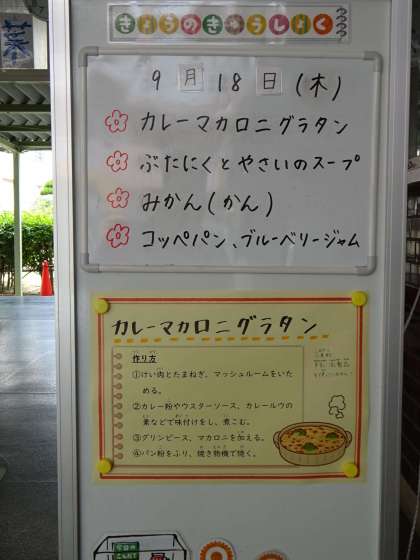 きょうのきゅうしょく
9月18日(木)
カレーマカロニグラタン
ぶたにくとやさいのスープ
みかん(かん)
コッペパン、ブルーベリージャム
カレーマカロニグラタン
作り方
①けい肉とたまねぎ、マッシュルームをいた
める。
②カレー粉やウスターソース、カレールウの
素などで味付けをし、煮こむ。
③グリンピース、マカロニを加える。
④パン粉をふり、焼き物機で焼く。